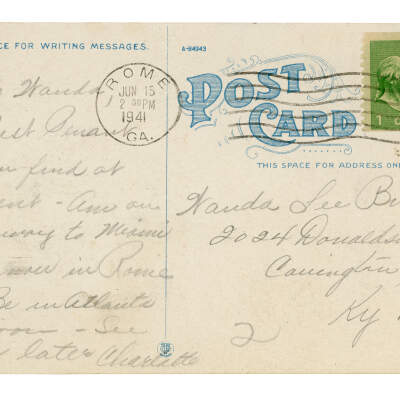 CE FOR WRITING MESSAGES.
A-84943
ROME
JUN 15
2 PM
1941
GA.
POST
CARD
THIS SPACE FOR ADDRESS ONL
1
Wanda,
find at
Am on
way to Miami
now in Rome
Be in Atlanta
See
later Charlotte
Wanda Lee
2024 Donalds
Covington
Ky
2